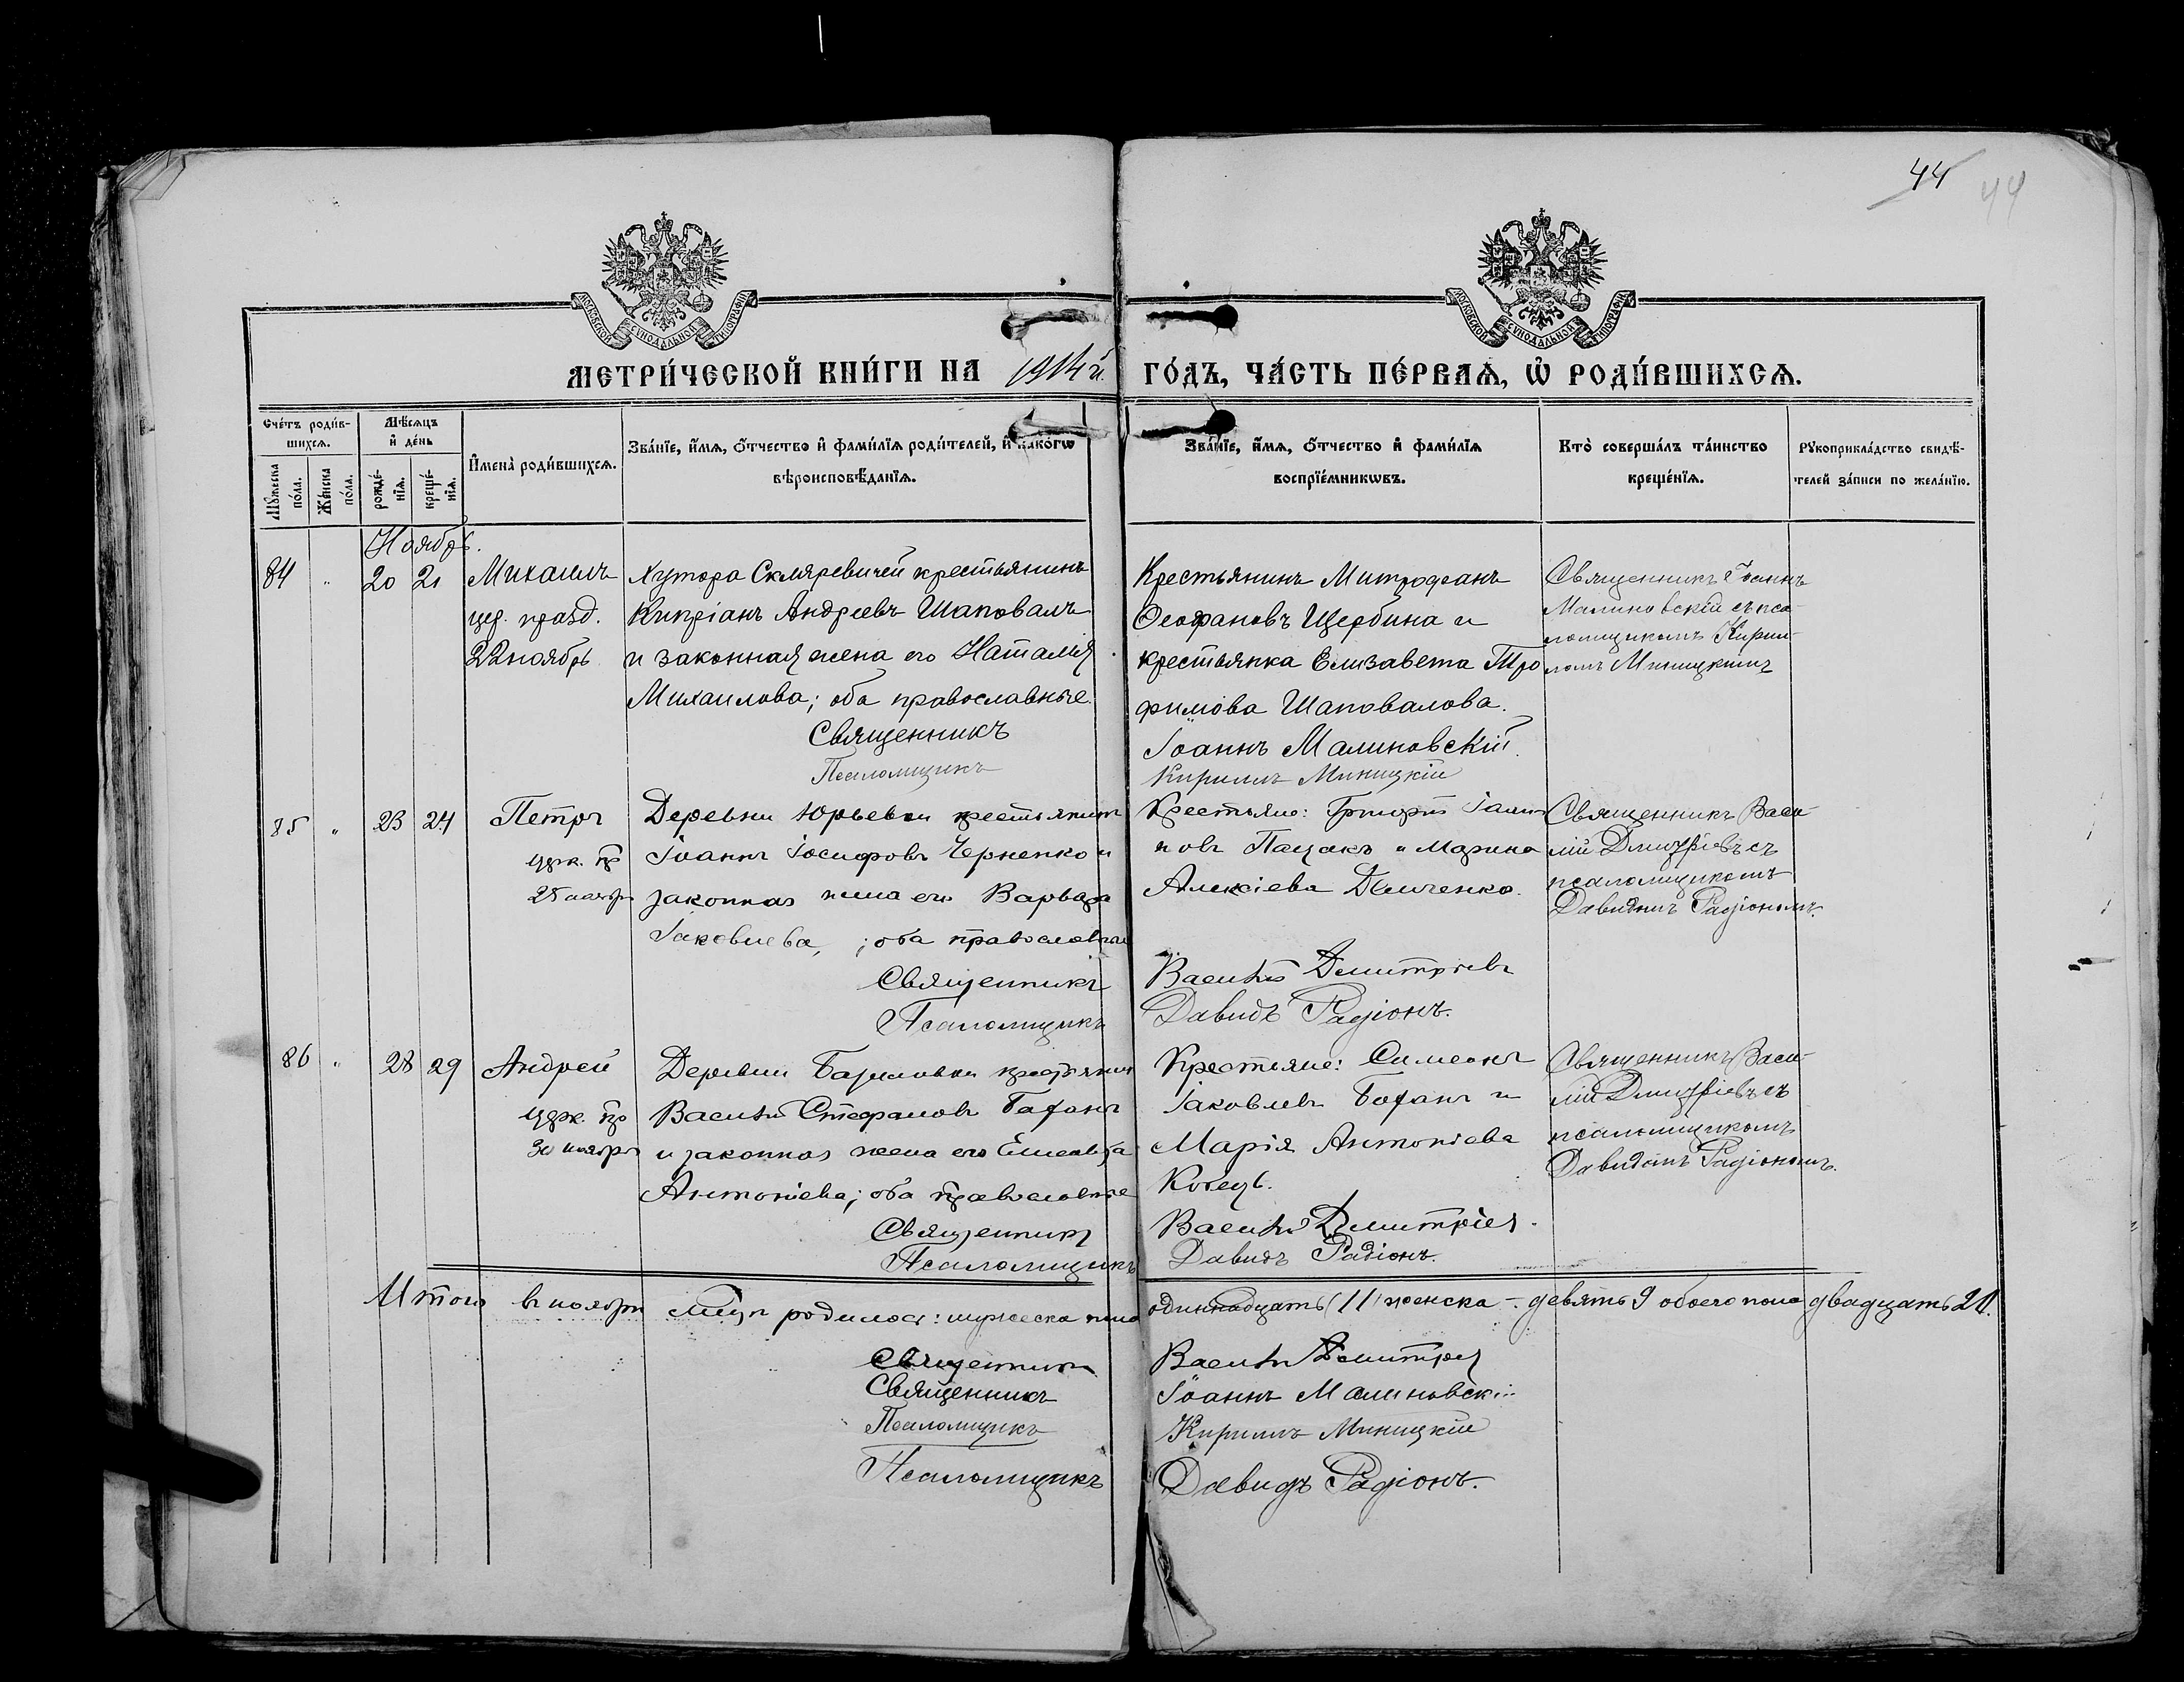 44 44
МОСКОВСКОЙ СѴНОДАЛЬНОЙ ТИПОГРАФІИ
МОСКОВСКОЙ СѴНОДАЛЬНОЙ ТИПОГРАФІИ
МЕТРИ́ЧЕСКОЙ КНИ́ГИ НА 1914 й. ГО́ДЪ, ЧА́СТЬ ПЕ́РВАѦ, Ѡ҆ РОДИ́ВШИХСѦ.
Счетъ роди́в-
шихсѧ.
Мꙋжеска по́ла.
Же́нска по́ла.
Мѣ́сѧцъ
и҆ де́нь
рожде́-
нїѧ.
креще́-
нїѧ.
И҆мена̀ роди́вшихсѧ.
Зва́нїе, и҆́мѧ, ѻ҆́тчество и҆ фами́лїѧ роди́телей, и҆ како́гѡ
вѣроисповѣ́данїѧ.
Зва́нїе, и҆́мѧ, ѻ҆́тчество и҆ фами́лїѧ
воспрїе́мникѡвъ.
Кто̀ соверша́лъ та́инство
креще́нїѧ.
Рꙋкоприкла́дство свидѣ́-
телей за́писи по жела́нїю.
Ноябрь.
84 " 20 21
Михаилъ
цер. празд.
22 ноябрь
Хутора Скляревичей крестьянинъ
Кипріанъ Андреевъ Шаповалъ
и законная жена его Наталія
Михаилова; оба православные.
Священникъ
Псаломщикъ
Крестьянинъ Митрофанъ
Ѳеофановъ Щербина и
крестьянка Елизавета Тро
фимова Шаповалова.
Іоаннъ Малиновскій
Кириллъ Миницкій
Священникъ Іоаннъ
Малиновскій съ пса-
ломщикомъ Кирил-
ломъ Миницкимъ
85 " 23 24
Петръ
црк. пр
25 ноябр
Деревни Юрьевки крестьянинъ
Іоаннъ Іосифовъ Черненко и
законная жена его Варвара
Іаковлева, ; оба православные
Священникъ
Псаломщикъ
Крестьяне: Григорій Іоан
новъ Пацакъ и Марина
Алексіева Демченко.
Василій Димитріевъ
Давидъ Радіонъ.
Священникъ Васи-
лій Дмитріевъ съ
псаломщикомъ
Давидомъ Радіономъ.
86 " 28 29
Андрей
црк. пр
30 ноябр
Деревни крестьянинъ
Василій Стефановъ
и законная жена его Елисавета
Антоніева; оба православные
Священникъ
Псаломщикъ
Крестьяне: Симеонъ
Іаковлевъ и
Марія Антоніева
Василій Димитріев.
Давидъ Радіонъ.
Священникъ Васи-
лій Дмитріевъ съ
псаломщикомъ
Давидомъ Радіономъ.
Итого въ ноябрѣ мцѣ родилось: мужеска пола одиннадцать (11) женска - девять 9 обоего пола двадцать 20.
Священникъ Василій Димитріев
Священникъ Іоаннъ Малиновскій
Псаломщикъ Кириллъ Миницкій
Псаломщикъ Давидъ Радіонъ.